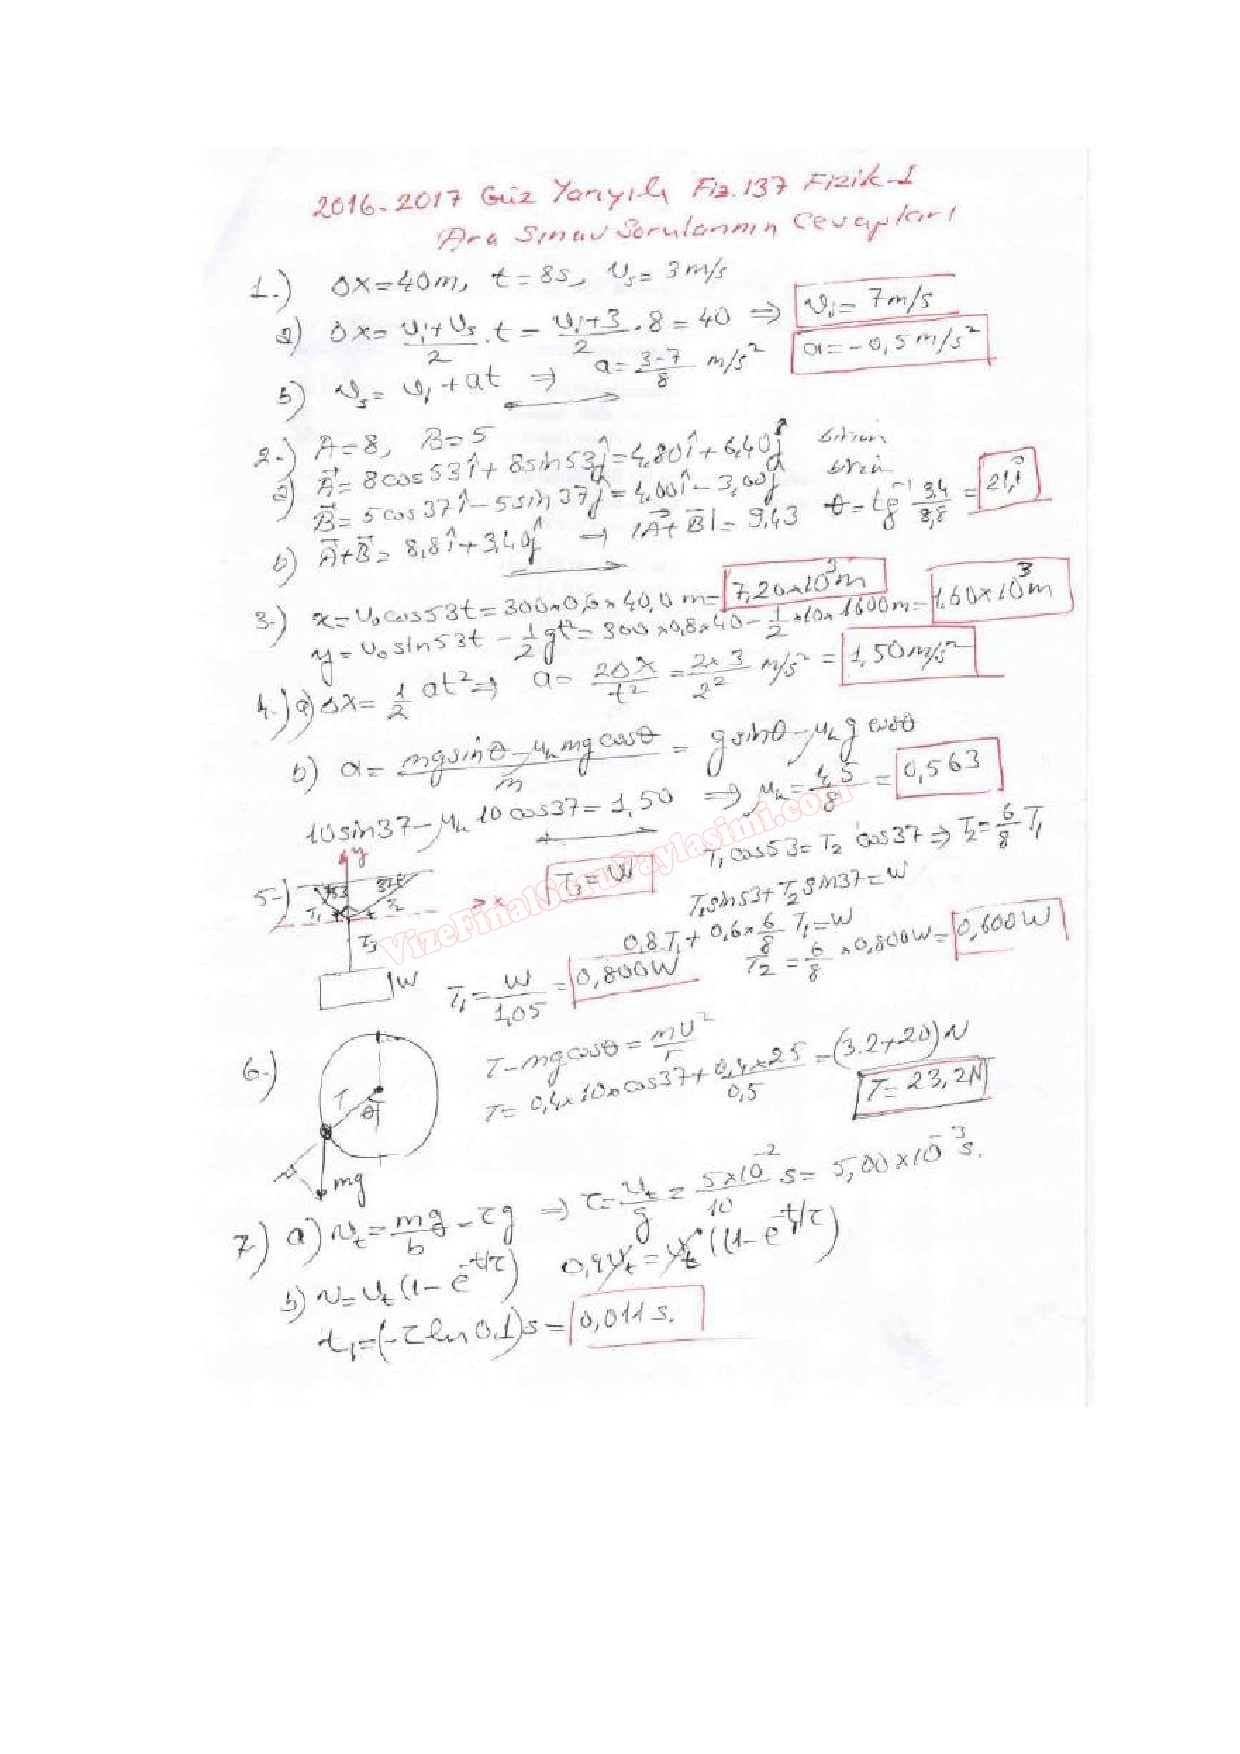 2016-2017 Güz Yarıyılı Fiz.137 Fizik-I
Ara Sınav Sorularının Cevapları
1.) Δx=40m, t=8s, υs=3m/s
a) Δx=(υi+υs)/2 . t = (υi+3)/2 . 8 = 40 ⇒ υi=7m/s
b) υs=υi+at ⇒ a=(3-7)/8 m/s² a=-0,5m/s²
2.) A=8, B=5
a) A=8cos53î+8sin53ĵ=4,80î+6,40ĵ birim
B=5cos37î-5sin37ĵ=4,00î-3,00ĵ birim
b) A+B=8,8î+3,40ĵ → |A+B|=9,43 θ=tg⁻¹ 3,4/8,8 = 21,1°
3.) x=υ₀cos53t=300x0,6x40,0m=7,20x10³m
y=υ₀sin53t-½gt²=300x0,8x40-½x10x1600m=1,60x10³m
4.) a) Δx=½at² ⇒ a=2Δx/t²=2x3/2² m/s²=1,50m/s²
b) a=(mgsinθ-μk mgcosθ)/m = gsinθ-μk g cosθ
10sin37-μk 10cos37=1,50 ⇒ μk=4,5/8=0,563
5.) y 53 37 T₁ T₂ x T₃ W
T₃=W T₁cos53=T₂cos37 ⇒ T₂=6/8 T₁
T₁sin53+T₂sin37=W
0,8T₁+0,6x6/8 T₁=W
T₁=W/1,05=0,800W T₂=6/8x0,800W=0,600W
6.) T θ mg
T-mgcosθ=mυ²/r
T=0,4x10xcos37+0,4x25/0,5=(3.2+20)N
T=23,2N
7.) a) υt=mg/b-τg ⇒ τ=υt/g=5x10⁻²/10 s=5,00x10⁻³s.
b) υ=υt(1-e^(-t/τ)) 0,9υt=υt(1-e^(-t/τ))
t₁=(-τ ln 0,1)s=0,011s.
VizeFinalSoruPaylasimi.com